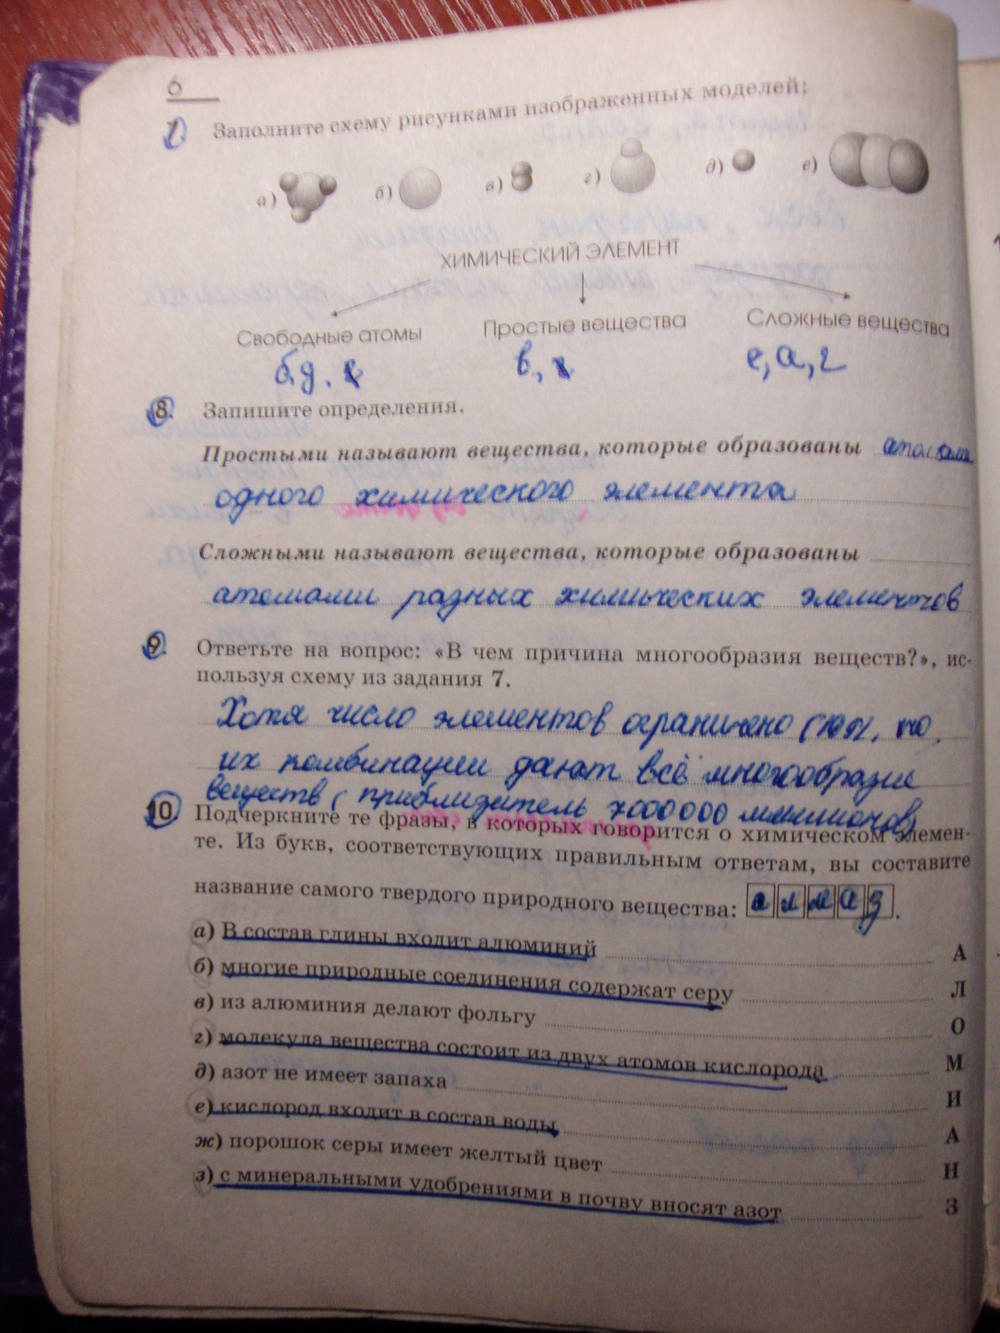 6
Заполните схему рисунками изображенных моделей:
а) б) в) г) д) е)
ХИМИЧЕСКИЙ ЭЛЕМЕНТ
Свободные атомы Простые вещества Сложные вещества
б, д, в, е, а, г
8. Запишите определения.
Простыми называют вещества, которые образованы атомами
одного химического элемента
Сложными называют вещества, которые образованы
атомами разных химических элементов
9. Ответьте на вопрос: «В чем причина многообразия веществ?», ис-
пользуя схему из задания 7.
Хотя число элементов ограничено но
их комбинации дают всё многообразие
веществ ( приблизитель 7000000 миллионов)
10. Подчеркните те фразы, в которых говорится о химическом элемен-
те. Из букв, соответствующих правильным ответам, вы составите
название самого твердого природного вещества: алмаз.
а) В состав глины входит алюминий А
б) многие природные соединения содержат серу Л
в) из алюминия делают фольгу О
г) молекула вещества состоит из двух атомов кислорода М
д) азот не имеет запаха И
е) кислород входит в состав воды А
ж) порошок серы имеет желтый цвет Н
з) с минеральными удобрениями в почву вносят азот З